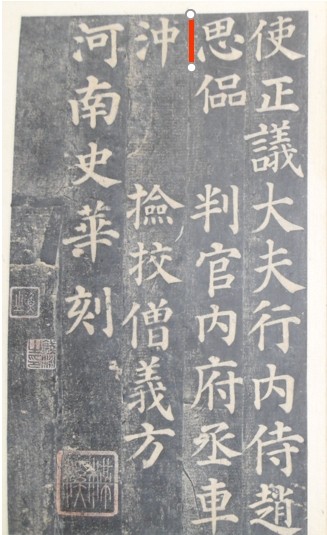 使正議大夫行内侍趙
思偘 判官内府丞車
沖 撿挍僧義方
河南史華刻